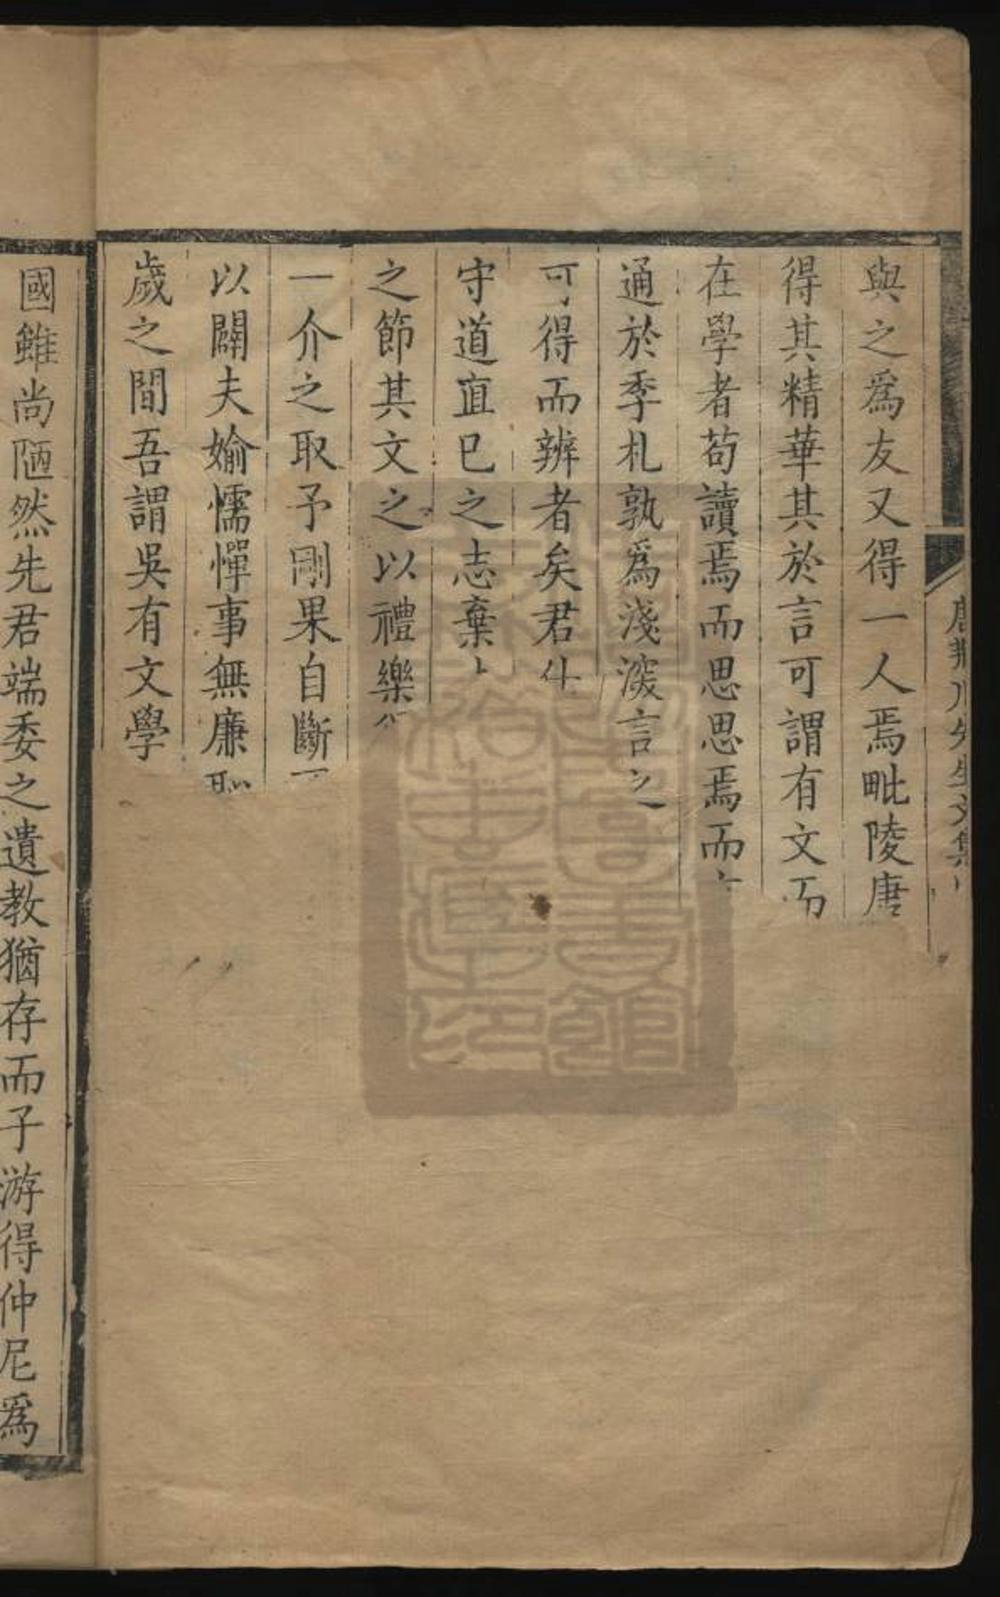 唐荊川先生文集
與之爲友又得一人焉毗陵唐
得其精華其於言可謂有文而
在學者苟讀焉而思思焉而
通於季札孰爲淺深言之
可得而辨者矣君
守道直巳之志棄
之節其文之以禮樂
一介之取予剛果自斷
以闢夫婾懦憚事無廉恥
歲之間吾謂吳有文學
國雖尚陋然先君端委之遺教猶存而子游得仲尼爲